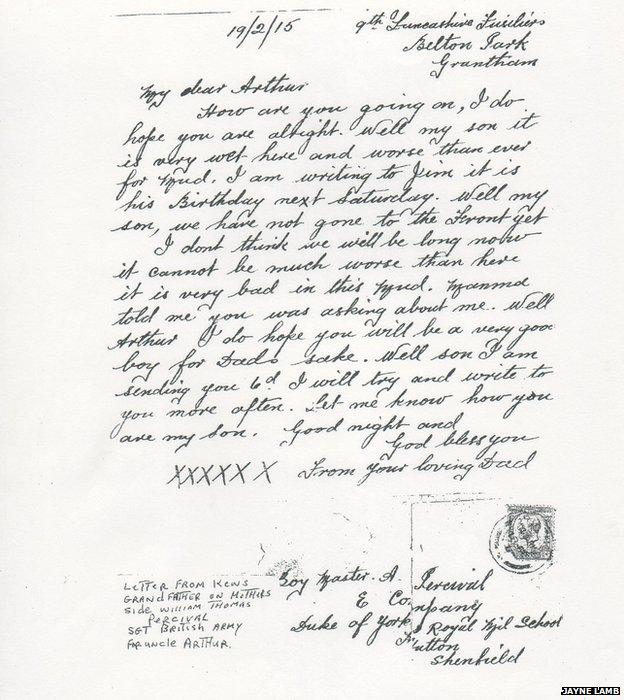 19/2/15
9th Lancashire Fusiliers
Belton Park
Grantham
My dear Arthur
How are you going on, I do
hope you are alright. Well my son it
is very wet here and worse than ever
for Mud. I am writing to Jim it is
his Birthday next Saturday. Well my
son, we have not gone to the Front yet
I dont think we will be long now
it cannot be much worse than here
it is very bad in this Mud. Mamma
told me you was asking about me. Well
Arthur I do hope you will be a very goo
boy for Dads sake. Well son I am
sending you 6d I will try and write to
you more often. Let me know how you
are my son. Good night and
God bless you
XXXXXX From your loving Dad
Boy Master. A. Percival
E Company
Duke of York Royal Mil School
Hutton
Shenfield
LETTER FROM KENS
GRANDFATHER ON MOTHERS
SIDE WILLIAM THOMAS
PERCIVAL
SGT BRITISH ARMY
FR UNCLE ARTHUR.
JAYNE LAMB